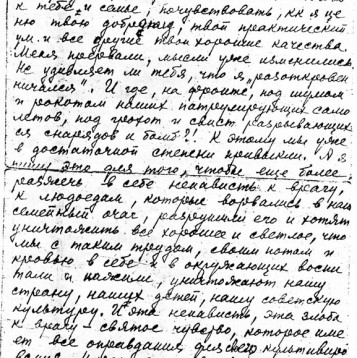 к тебе и семье, почувствовать, как я це
ню твою доброту, твой практический
ум и все другие твои хорошие качества.
Меня прервали, мысли уже изменились.
Не удивляет ли тебя, что я „разоткровен
ничался". И где, на фронте, под шумом
и рокотом наших патрулирующих само
летов, под грохот и свист разрывающих
ся снарядов и бомб?! К этому мы уже
в достаточной степени привыкли. А я
пишу это для того, чтобы еще более
разжечь в себе ненависть к врагу,
к людоедам, которые ворвались в наш
семейный очаг, разрушили его и хотят
уничтожить все хорошее и светлое, что
мы с таким трудом, своим потом и
кровью в себе и в окружающих воспи
тали и нажили, уничтожают нашу
страну, наших детей, нашу советскую
культуру. И эта ненависть, эта злоба
к врагу – святое чувство, которое име
ет все оправдания для его культивиро